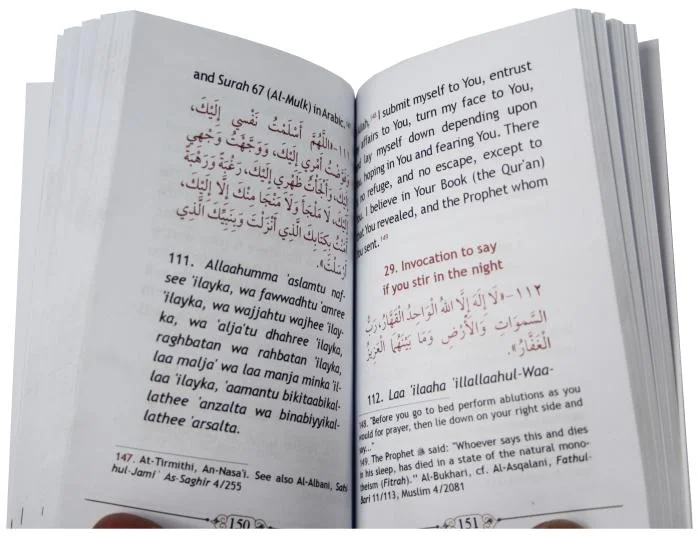 and Surah 67 (Al-Mulk) in Arabic.
١١١-«اللَّهُمَّ أَسْلَمْتُ نَفْسِي إِلَيْكَ،
وَفَوَّضْتُ أَمْرِي إِلَيْكَ، وَوَجَّهْتُ وَجْهِي
إِلَيْكَ، وَأَلْجَأْتُ ظَهْرِي إِلَيْكَ، رَغْبَةً وَرَهْبَةً
إِلَيْكَ، لَا مَلْجَأَ وَلَا مَنْجَا مِنْكَ إِلَّا إِلَيْكَ،
آمَنْتُ بِكِتَابِكَ الَّذِي أَنْزَلْتَ وَبِنَبِيِّكَ الَّذِي
أَرْسَلْتَ».
111. Allaahumma 'aslamtu naf-
see 'ilayka, wa fawwadhtu 'amree
'ilayka, wa wajjahtu wajhee 'ilay-
ka, wa 'alja'tu dhahree 'ilayka,
raghbatan wa rahbatan 'ilayka,
laa malja' wa laa manja minka 'il-
laa 'ilayka, 'aamantu bikitaabikal-
lathee 'anzalta wa binabiyyikal-
lathee 'arsalta.
147. At-Tirmithi, An-Nasa'i. See also Al-Albani, Sahi
hul-Jami' As-Saghir 4/255
150
I submit myself to You, entrust
affairs to You, turn my face to You,
lay myself down depending upon
hoping in You and fearing You. There
no refuge, and no escape, except to
I believe in Your Book (the Qur'an)
You revealed, and the Prophet whom
sent. 149
29. Invocation to say
if you stir in the night
١١٢-«لَا إِلَهَ إِلَّا اللهُ الْوَاحِدُ الْقَهَّارُ، رَبُّ
السَّمَوَاتِ وَالْأَرْضِ وَمَا بَيْنَهُمَا الْعَزِيزُ
الْغَفَّارُ».
112. Laa 'ilaaha 'illallaahul-Waa-
148. "Before you go to bed perform ablutions as you
would for prayer, then lie down on your right side and
say..."
149. The Prophet ﷺ said: "Whoever says this and dies
in his sleep, has died in a state of the natural mono-
theism (Fitrah)." Al-Bukhari, cf. Al-Asqalani, Fathul-
Bari 11/113, Muslim 4/2081
151